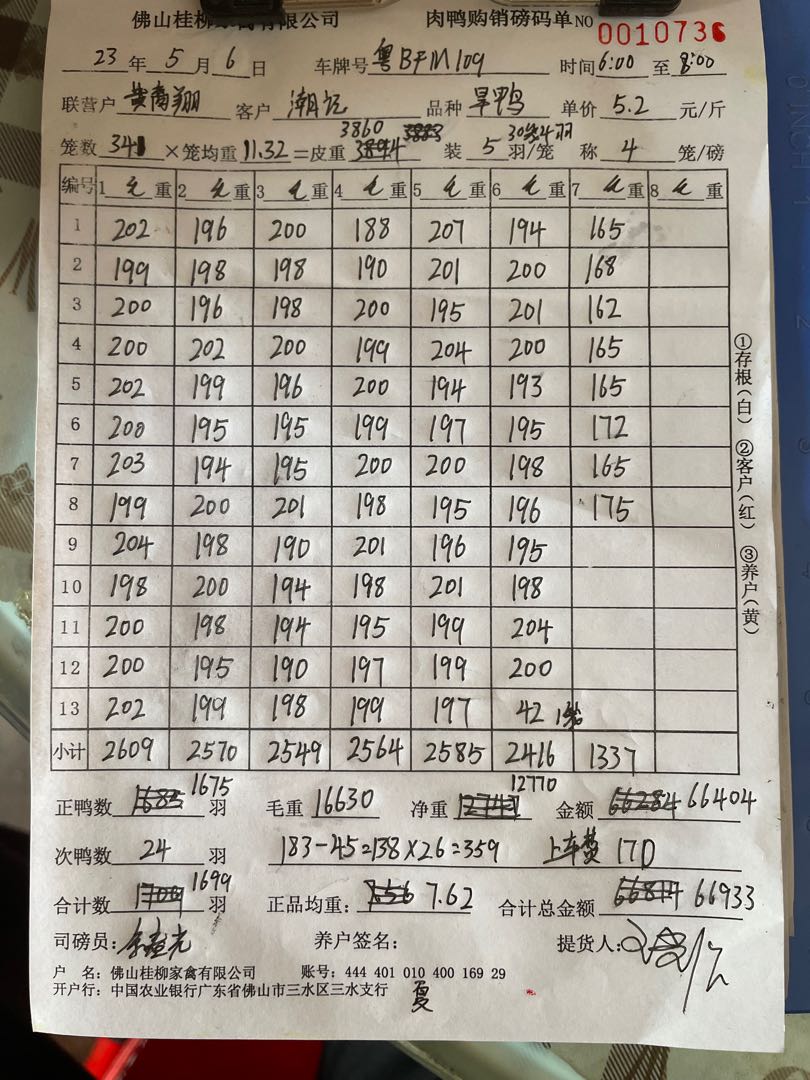 佛山桂柳家禽有限公司 肉鸭购销磅码单 NO 0010736
23 年 5 月 6 日 车牌号 粤BFM109 时间 6:00 至 8:00
联营户 黄高翔 客户 潮记 品种 旱鸭 单价 5.2 元/斤
笼数 341 ×笼均重 11.32 =皮重 3860 装 5 羽/笼 30笼4羽 称 4 笼/磅
编号 1 毛 重 2 毛 重 3 毛 重 4 毛 重 5 毛 重 6 毛 重 7 毛 重 8 毛 重
1 202 196 200 188 207 194 165
2 199 198 198 190 201 200 168
3 200 196 198 200 195 201 162
4 200 202 200 199 204 200 165
5 202 199 196 200 194 193 165
6 200 195 195 199 197 195 172
7 203 194 195 200 200 198 165
8 199 200 201 198 195 196 175
9 204 198 190 201 196 195
10 198 200 194 198 201 198
11 200 198 194 195 199 204
12 200 195 190 197 199 200
13 202 199 198 199 197 42 1笼
小计 2609 2570 2549 2564 2585 2416 1337
正鸭数 1675 羽 毛重 16630 净重 12770 金额 66404
次鸭数 24 羽 183-45=138×26=359 上车费 170
合计数 1699 羽 正品均重: 7.62 合计总金额 66933
司磅员: 养户签名: 提货人:
户 名: 佛山桂柳家禽有限公司 账号: 444 401 010 400 169 29
开户行: 中国农业银行广东省佛山市三水区三水支行 夏
①存根(白) ②客户(红) ③养户(黄)